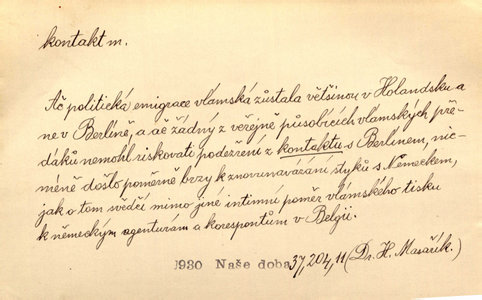 kontakt m.
Ač politická emigrace vlámská zůstala většinou v Holandsku a
ne v Berlíně, a ač žádný z veřejně působících vlámských pře-
dáků nemohl riskovati podezření z kontaktu s Berlínem, nic-
méně došlo poměrně brzy k znovunavázání styků s Německem,
jak o tom svědčí mimo jiné intimní poměr vlámského tisku
k německým agenturám a korespontům v Belgii.
1930 Naše doba 37, 204, 11 (Dr. H. Masařík.)